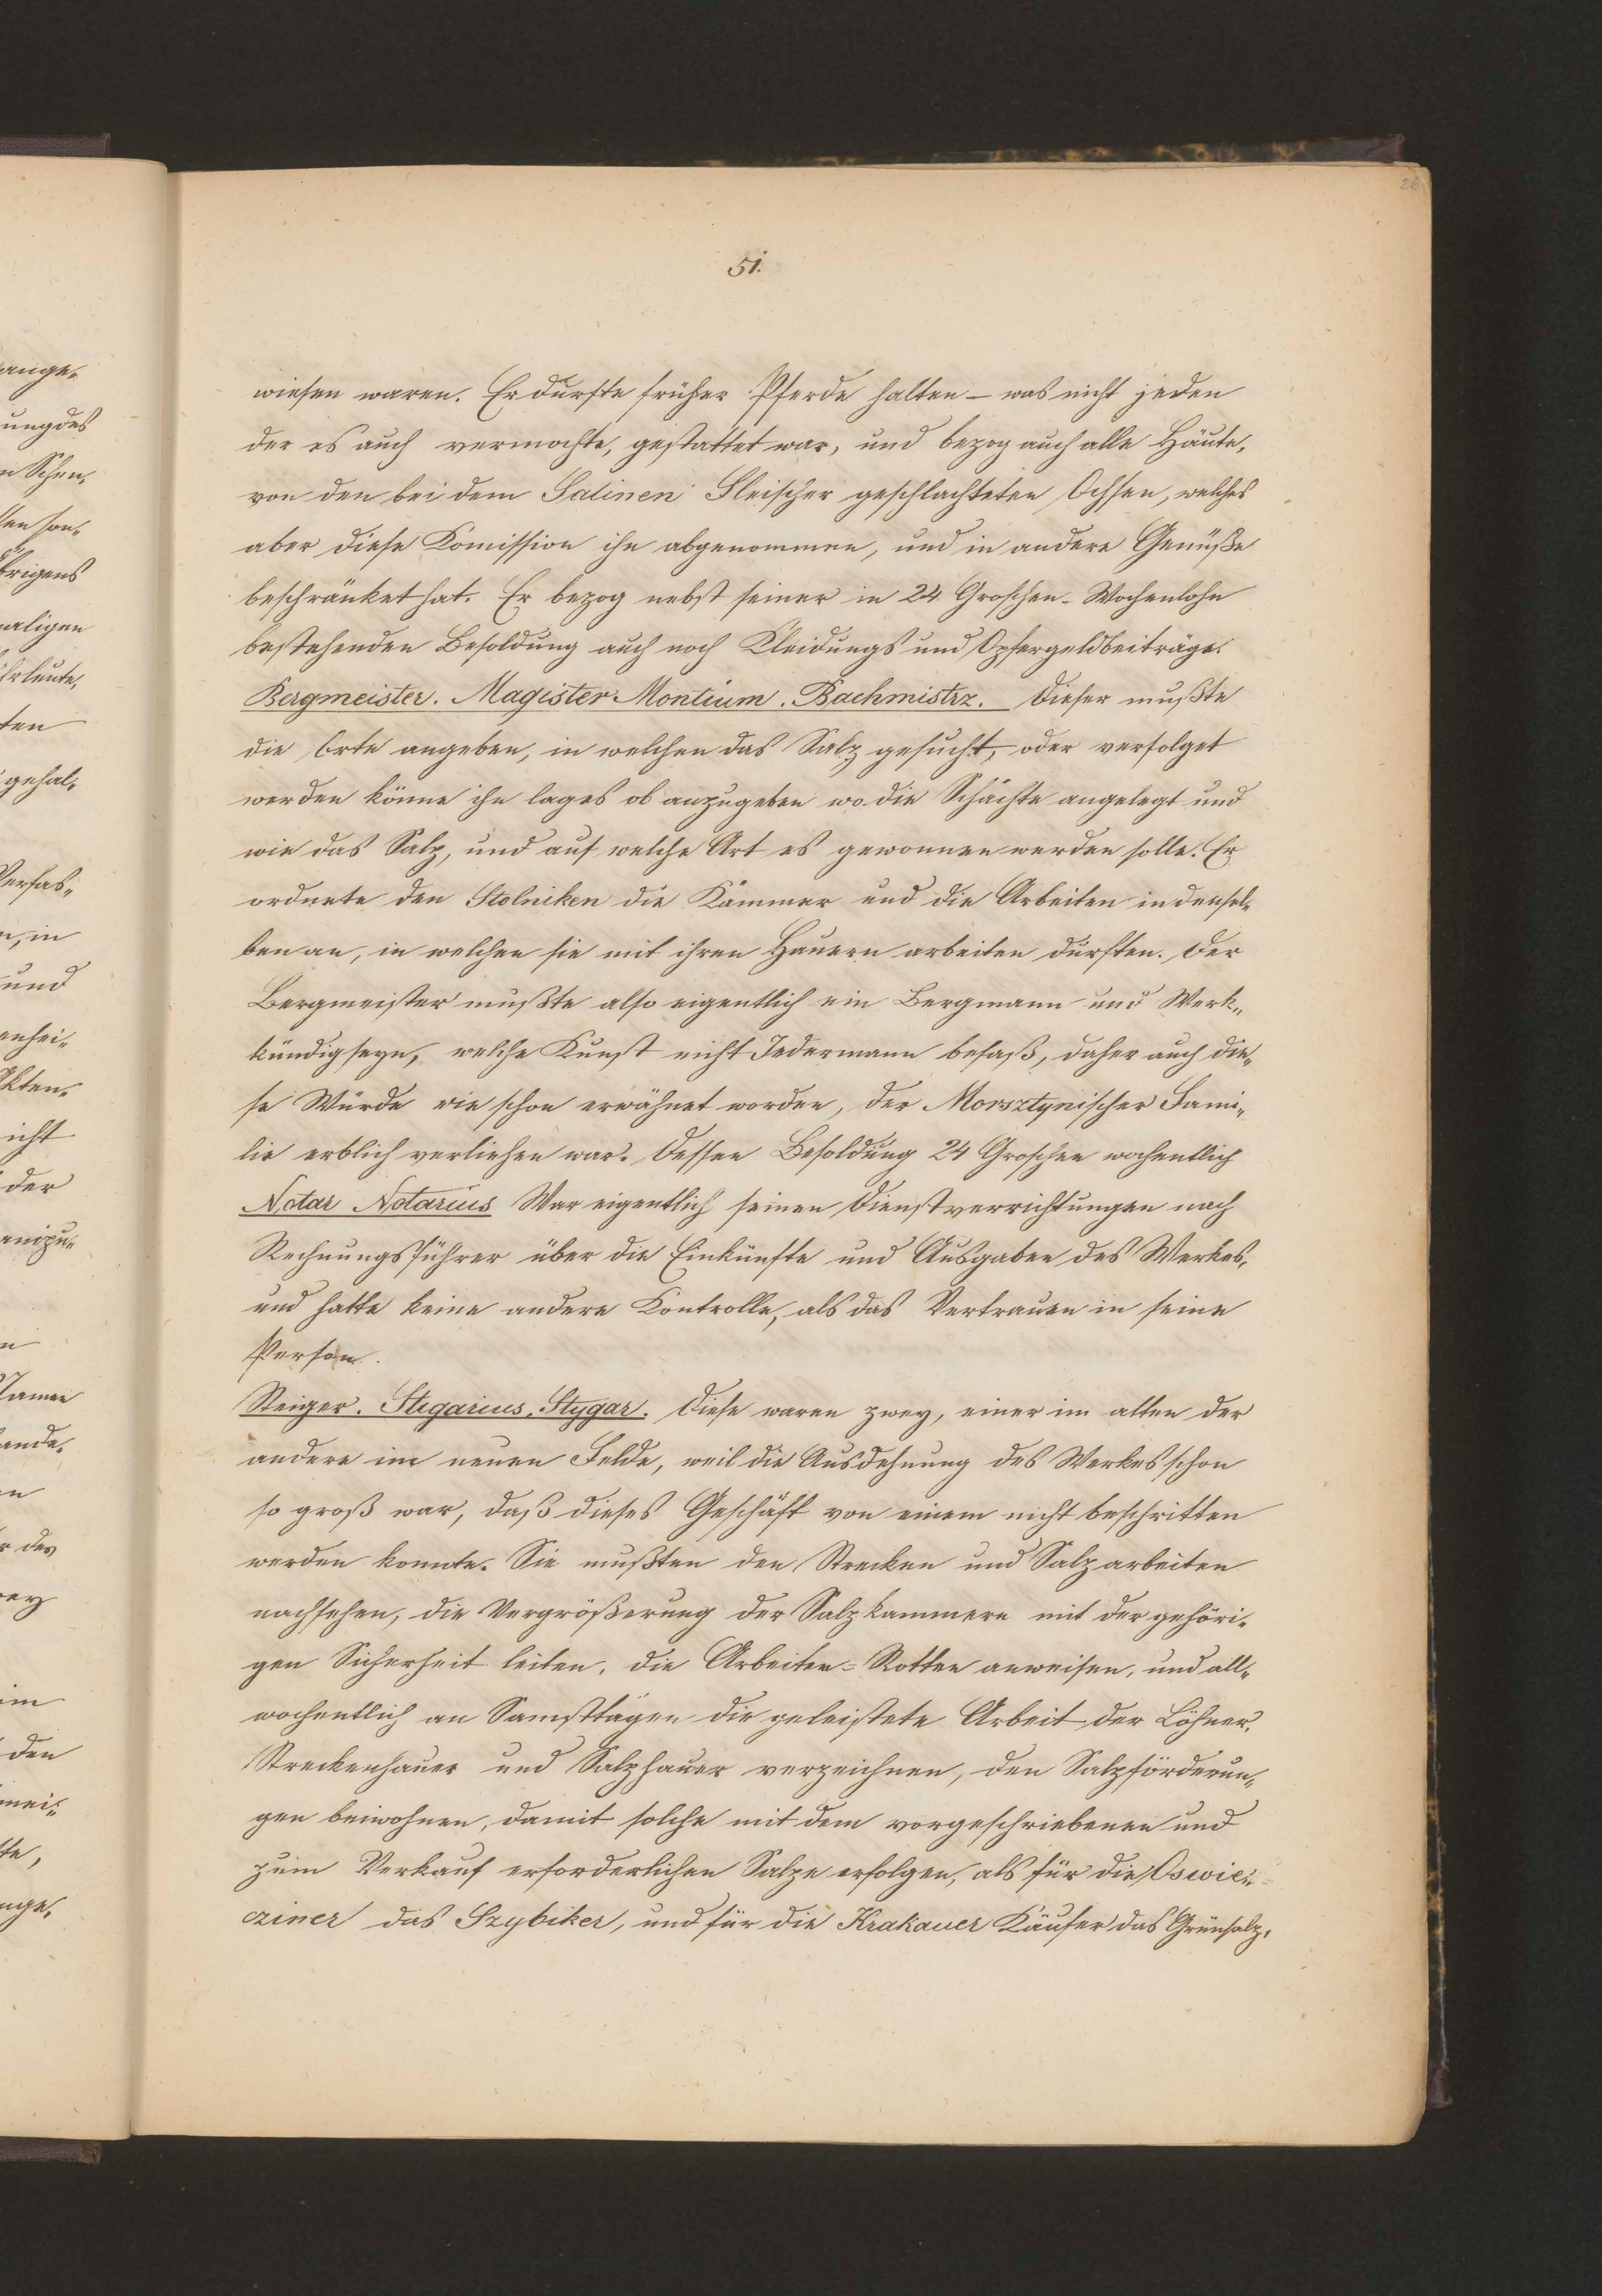 26
51.
wiesen waren. Er durfte früher Pferde halten – was nicht jeden
der es auch vermochte, gestattet war, und bezog auch alle Häute,
von den bei dem Salinen Fleischer geschlachteten Ochsen, welches
aber diese Komission ihn abgenommen, und in andere Genüße
beschränket hat. Er bezog nebst seiner in 24 Groschen-Wochenlohn
bestehenden Besoldung auch noch Kleidungs und Opfergeldbeiträge.
Bergmeister. Magister Montium. Bachmistrz. Dieser mußte
die Orte angeben, in welchen das Salz gesucht, oder verfolget
werden könne ihn lages ob anzugeben wo die Schächte angelegt und
wie das Salz, und auf welche Art es gewonnen werden solle. Er
ordnete den Stolniken die Kammer und die Arbeiten in densel„
ben an, in welchen sie mit ihren Hauern arbeiten durften. Der
Bergmeister mußte also eigentlich ein Bergmann und Werk„
kündig seyn, welche Kunst nicht Jedermann besaß, daher auch die„
se Würde wie schon erwähnet worden, der Morsztynischer Fami„
lie erblich verliehen war. Dessen Besoldung 24 Groschen wochentlich
Notar Notarius War eigentlich seinen Dienstverrichtungen nach
Rechnungsführer über die Einkünfte und Ausgaben des Werkes,
und hatte keine andere Kontrolle, als das Vertrauen in seine
Person.
Steiger. Stigarius. Stygar. Diese waren zwey, einer im alten der
andere im neuen Felde, weil die Ausdehnung des Werkes schon
so groß war, daß dieses Geschäft von einem nicht beschritten
werden konnte. Sie mußten den Strecken und Salzarbeiten
nachsehen, die Vergrößerung der Salzkammern mit der gehöri„
gen Sicherheit leiten, die Arbeiter-Rotten anweisen, und all„
wochentlich an Samsttägen die geleistete Arbeit der Löhner,
Streckenhauer und Salzhauer verzeichnen, den Salzförderun„
gen beiwohnen, damit solche mit dem vorgeschriebenen und
zum Verkauf erforderlichen Salze erfolgen, als für die Oswie„
cziner das Szybiker, und für die Krakauer Käufer das Grünsalz,